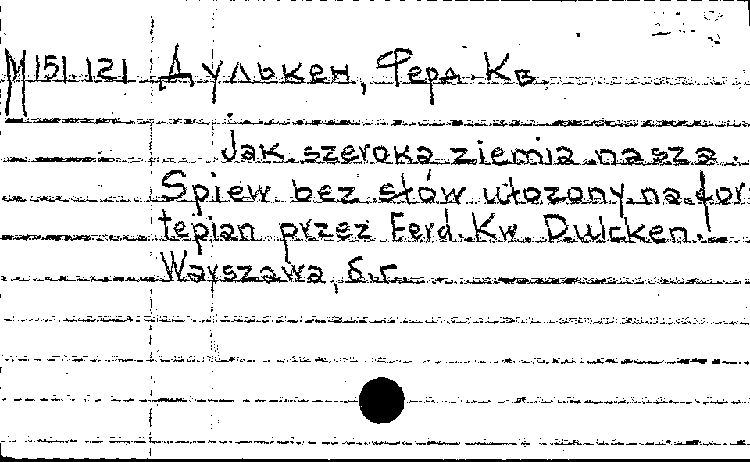 М 151.121 Дулькен, Ферд. Кв.
Jak szeroka ziemia nasza.
Spiew bez słów ułozony na for-
tepian przez Ferd. Kw. Dulcken.
Warszawa, б.г.